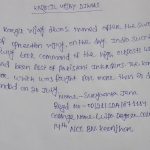 KARGIL VIJAY DIWAS
Kargil Vijay Diwas named after the success
of operation Vijay. on this day, India success-
fully took command of the high outposts which
had been lost of pakistani intruders. The Kargil
war which was fought for more than 60 days
ended on 26 July.
Name - Suryakanta Jena
College Name - College
NCC BN Keonjhar